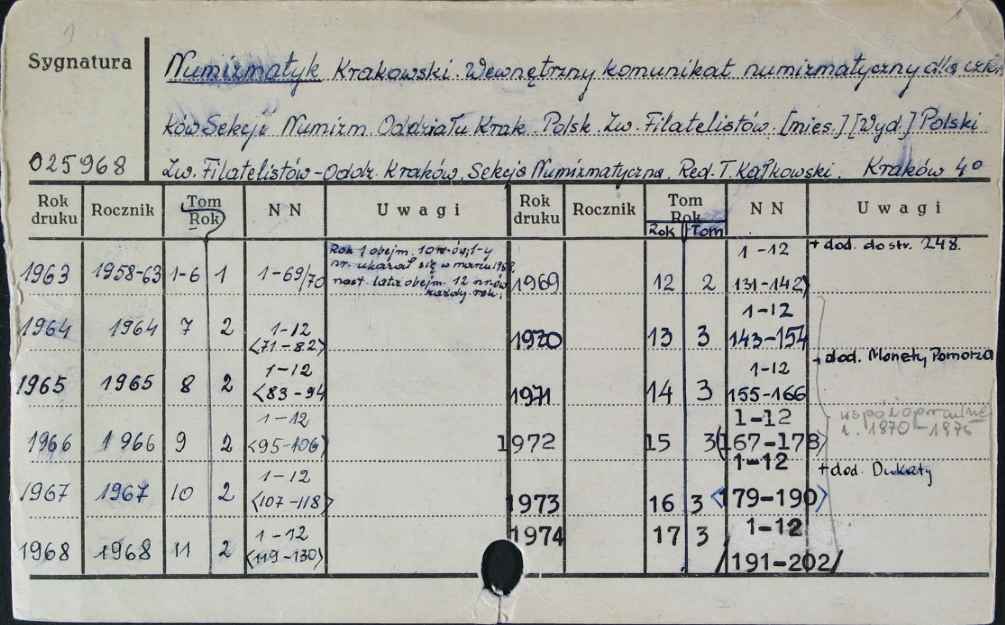 Sygnatura
Numizmatyk Krakowski. Wewnętrzny komunikat numizmatyczny dla człon-
ków Sekcji Numizm. Oddziału Krak. Polsk. Zw. Filatelistów. [mies.] [Wyd.] Polski
025968
Zw. Filatelistów - Oddz. Kraków. Sekcja Numizmatyczna. Red. T. Kałkowski. Kraków 4°
Rok druku Rocznik Tom Rok NN Uwagi Rok druku Rocznik Tom Rok NN Uwagi
Rok Tom
1963 1958-63 1-6 1 1-69/70 Rok 1 obejm. 10 nr-ów, 1-y
nr. ukazał się w marcu
nast. lata obejm. 12 nr-ów
każdy rok.
1964 1964 7 2 1-12
<71-82>
1965 1965 8 2 1-12
<83-94
1966 1966 9 2 1-12
<95-106>
1967 1967 10 2 1-12
<107-118>
1968 1968 11 2 1-12
<119-130>
1969 12 2 1-12
131-142) + dod. do str. 248.
1970 13 3 1-12
143-154
1971 14 3 1-12
155-166 + dod. Monety Pomorza
1972 15 3 1-12
(167-178>
współoprawne
r. 1970-1975
1973 16 3 1-12
<179-190> + dod. Dukaty
1974 17 3 1-12
/191-202/